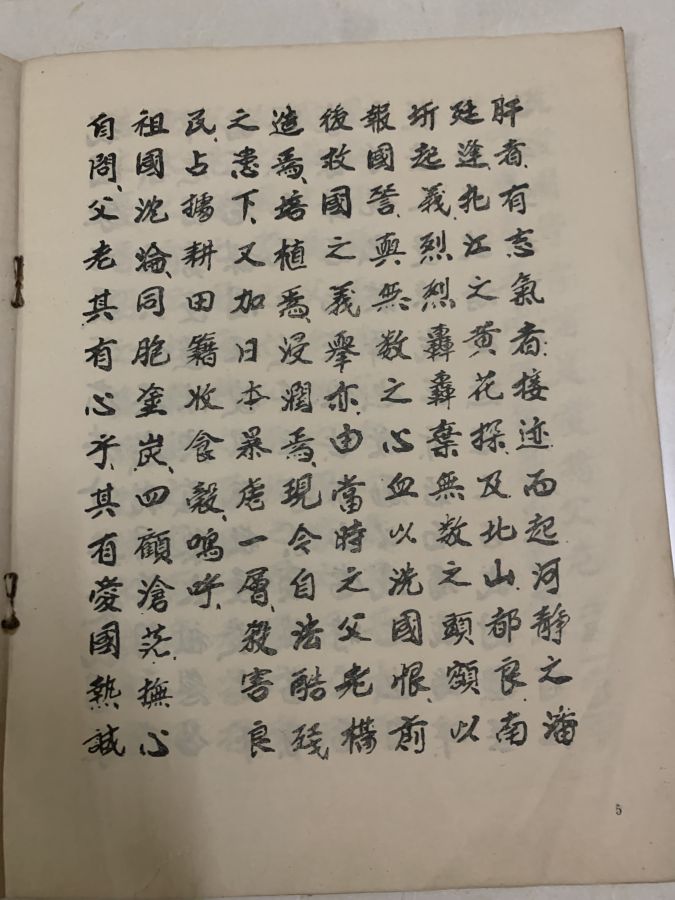 肝者、有志氣者、接迹而起河靜之潘
廷逢、扎江之黄花探、及北山都良南
圻起義、烈烈轟轟棄無數之頭顱以
報國讐、與無數之心血以洗國恨、前
後救國之義舉、亦由當時之父老構
造焉、培植焉、浸潤焉、現今自法酷殘
之患下、又加日本暴虐一層、殺害良
民、占攄耕田籍收食穀、嗚呼、
祖國沈淪、同胞塗炭、四顧滄茫、撫心
自問、父老其有心乎、其有愛國熱誠
5